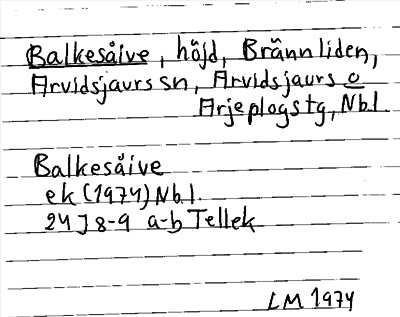 Balkesåive, höjd, Brännliden,
Arvidsjaurs sn, Arvidsjaurs o
Arjeplogs tg, Nbl.
Balkesåive
ek (1974) Nbl.
24J 8-9 a-b Tellek
LM 1974